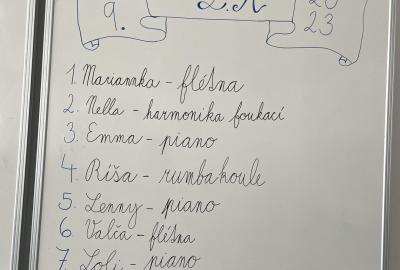 9.
23
1. Mariannka - flétna
2. Nella - harmonika foukací
3. Emma - piano
4. Ríša - rumbakoule
5. Lenny - piano
6. Valča - flétna
7. Loli - piano